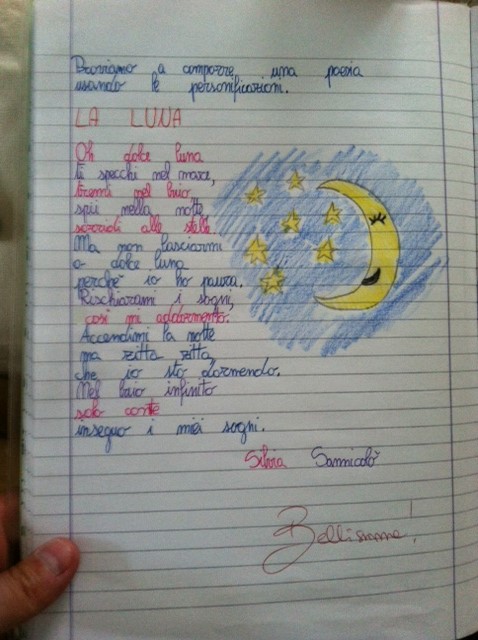 Proviamo a comporre una poesia
usando le personificazioni.
LA LUNA
Oh dolce luna
ti specchi nel mare,
tremi nel buio,
spii nella notte
sorridi alle stelle.
Ma non lasciarmi
o dolce luna
perchè io ho paura.
Rischiarami i sogni,
così mi addormento.
Accendimi la notte
ma zitta zitta,
che io sto dormendo.
Nel buio infinito
solo con te
inseguo i miei sogni.
Silvia Sannicolò
Bellissima!